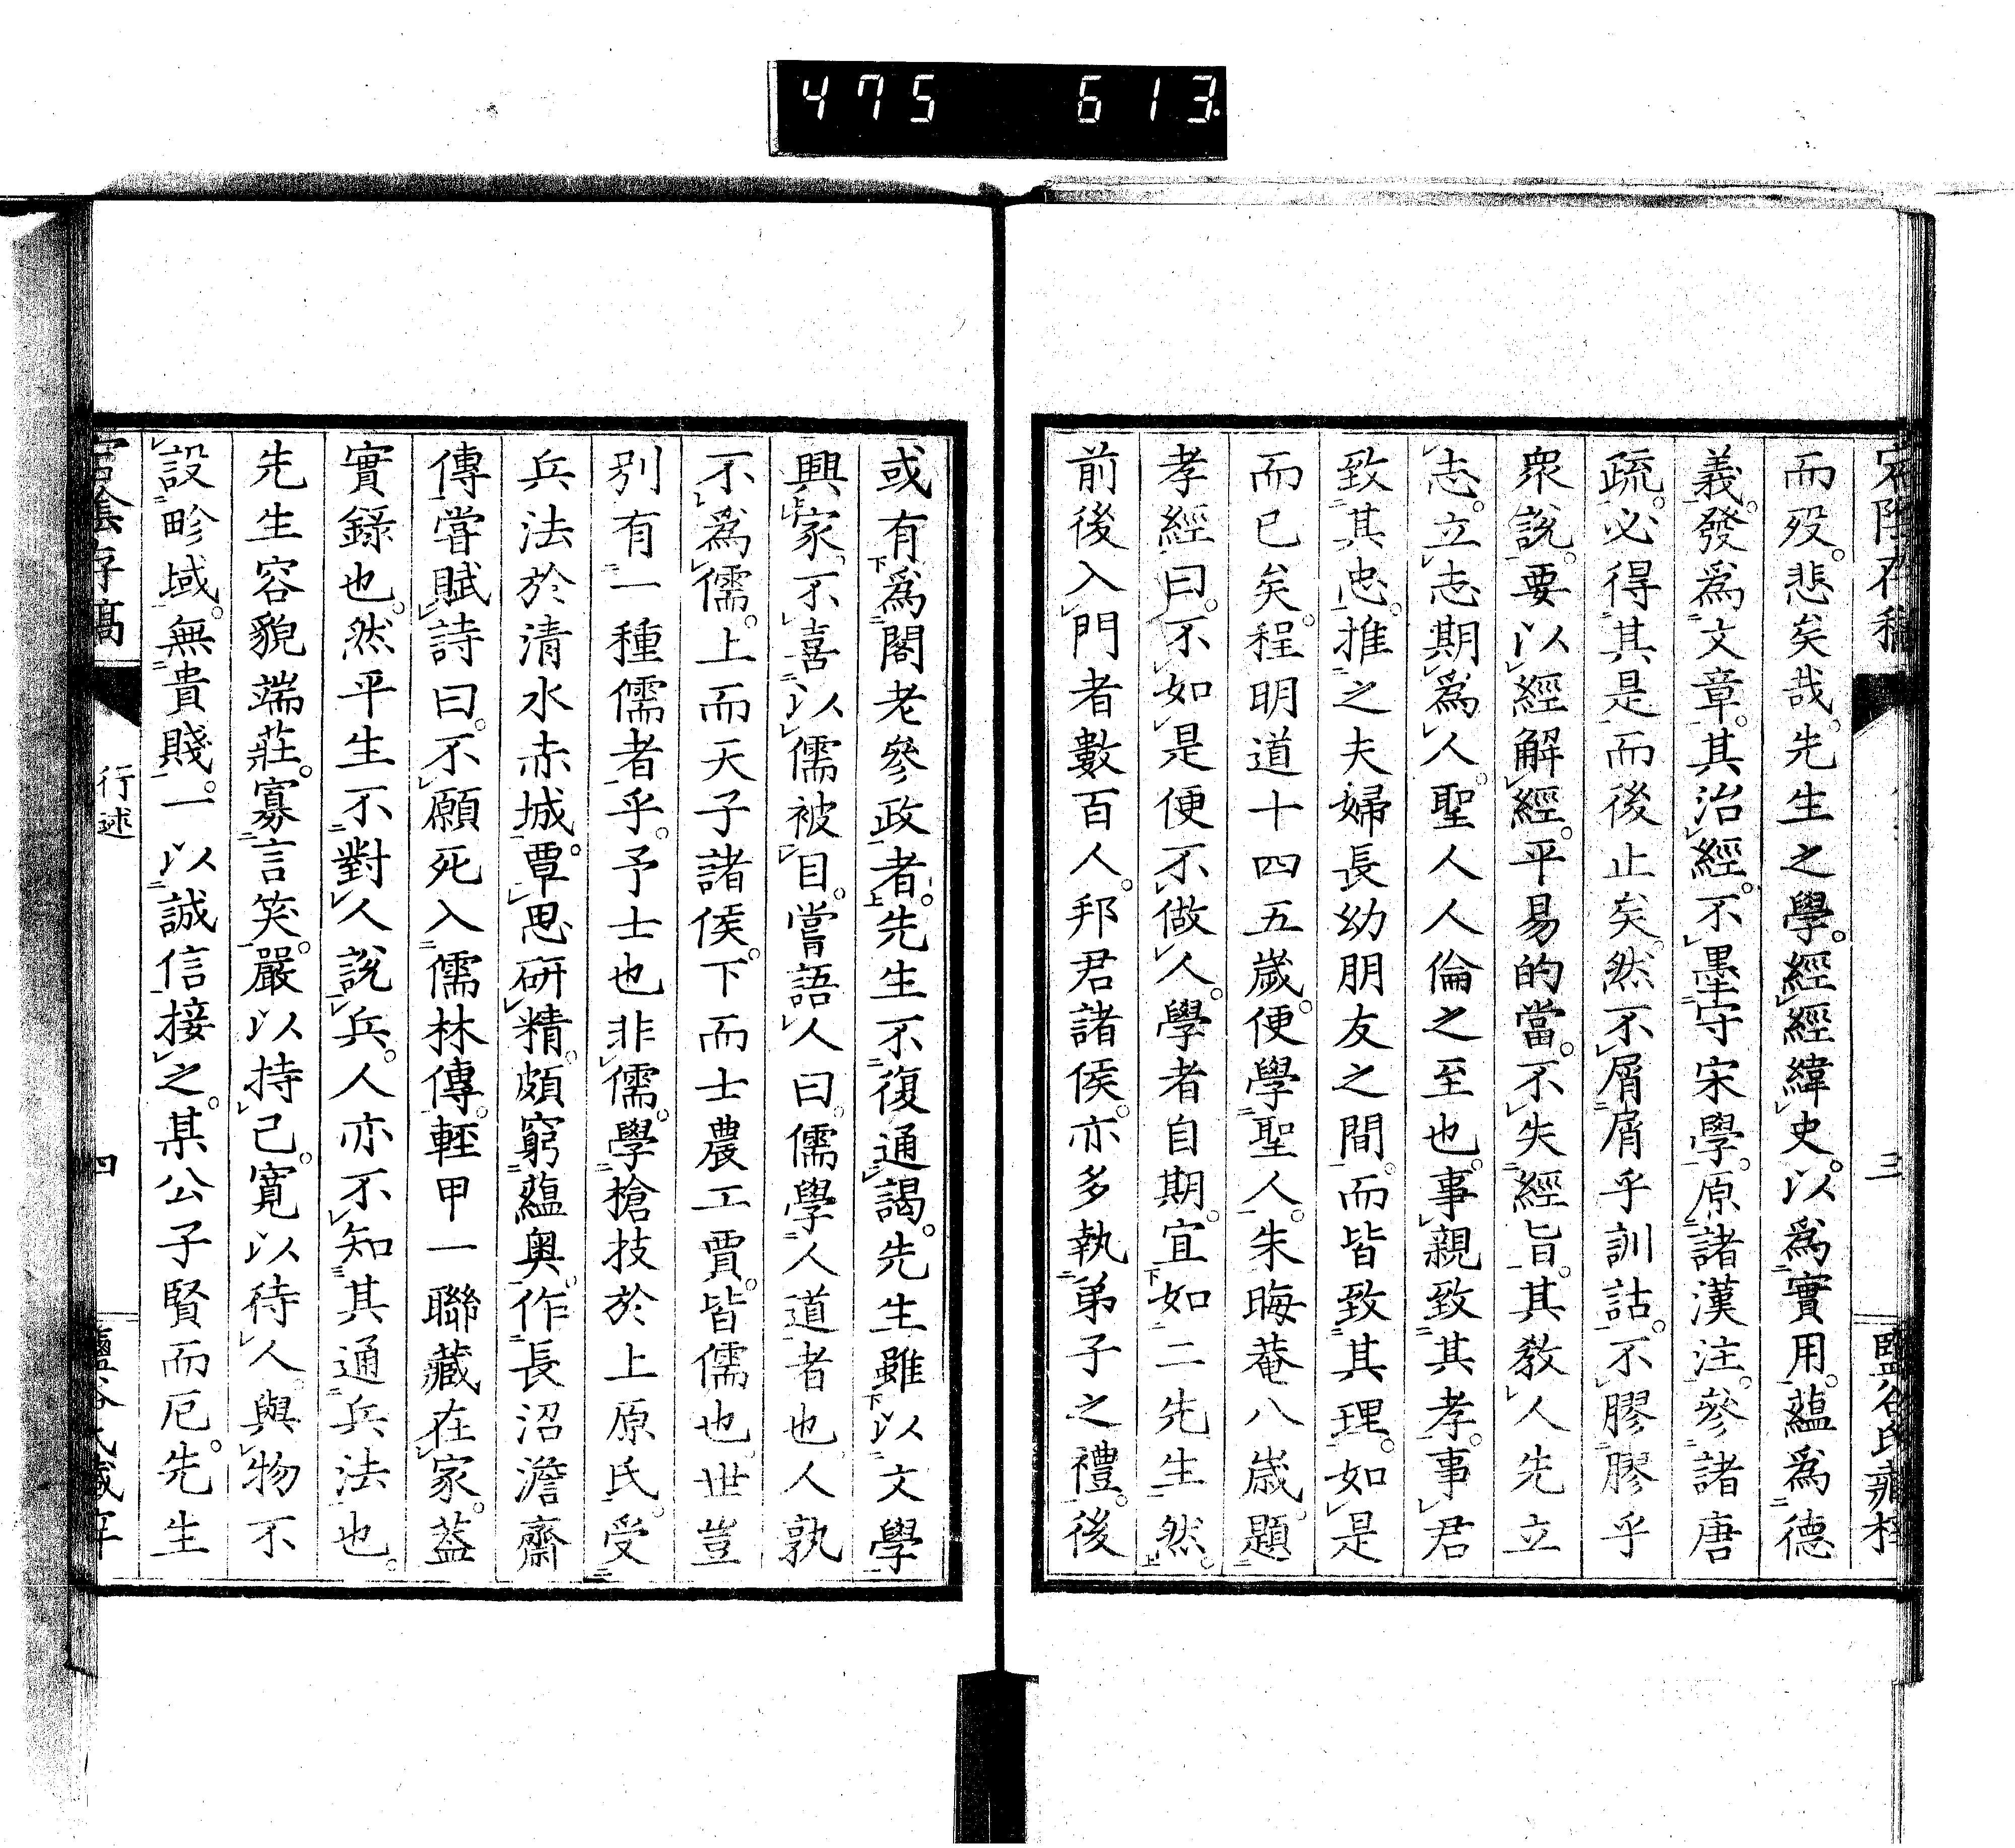 475 613
三
而歿。悲矣哉。先生之學。經經緯史。以爲實用。蘊爲德
義。發爲文章。其治經。不墨守宋學。原諸漢注。參諸唐
疏。必得其是而後止矣。然不屑屑乎訓詁。不膠膠乎
衆說。要以經解經。平易的當。不失經旨。其敎人先立
志。立志期爲人。聖人人倫之至也。事親致其孝。事君
致其忠。推之夫婦長幼朋友之間。而皆致其理。如是
而已矣。程明道十四五歲。便學聖人。朱晦菴八歲。題
孝經曰。不如是便不做人。學者自期。宜如二先生然。
前後入門者數百人。邦君諸侯。亦多執弟子之禮。後
或有爲閣老參政者。先生不復通謁。先生雖以文學
興家。不喜以儒被目。嘗語人曰。儒學人道者也。人孰
不爲儒。上而天子諸侯。下而士農工賈。皆儒也。世豈
別有一種儒者乎。予士也非儒。學槍技於上原氏。受
兵法於清水赤城。覃思研精。頗窮蘊奧。作長沼澹齋
傳。嘗賦詩曰。不願死入儒林傳。輕甲一聯藏在家。蓋
實錄也。然平生不對人說兵。人亦不知其通兵法也。
先生容貌端莊。寡言笑。嚴以持己。寬以待人。與物不
設畛域。無貴賤。一以誠信接之。某公子賢而厄。先生
行述
四